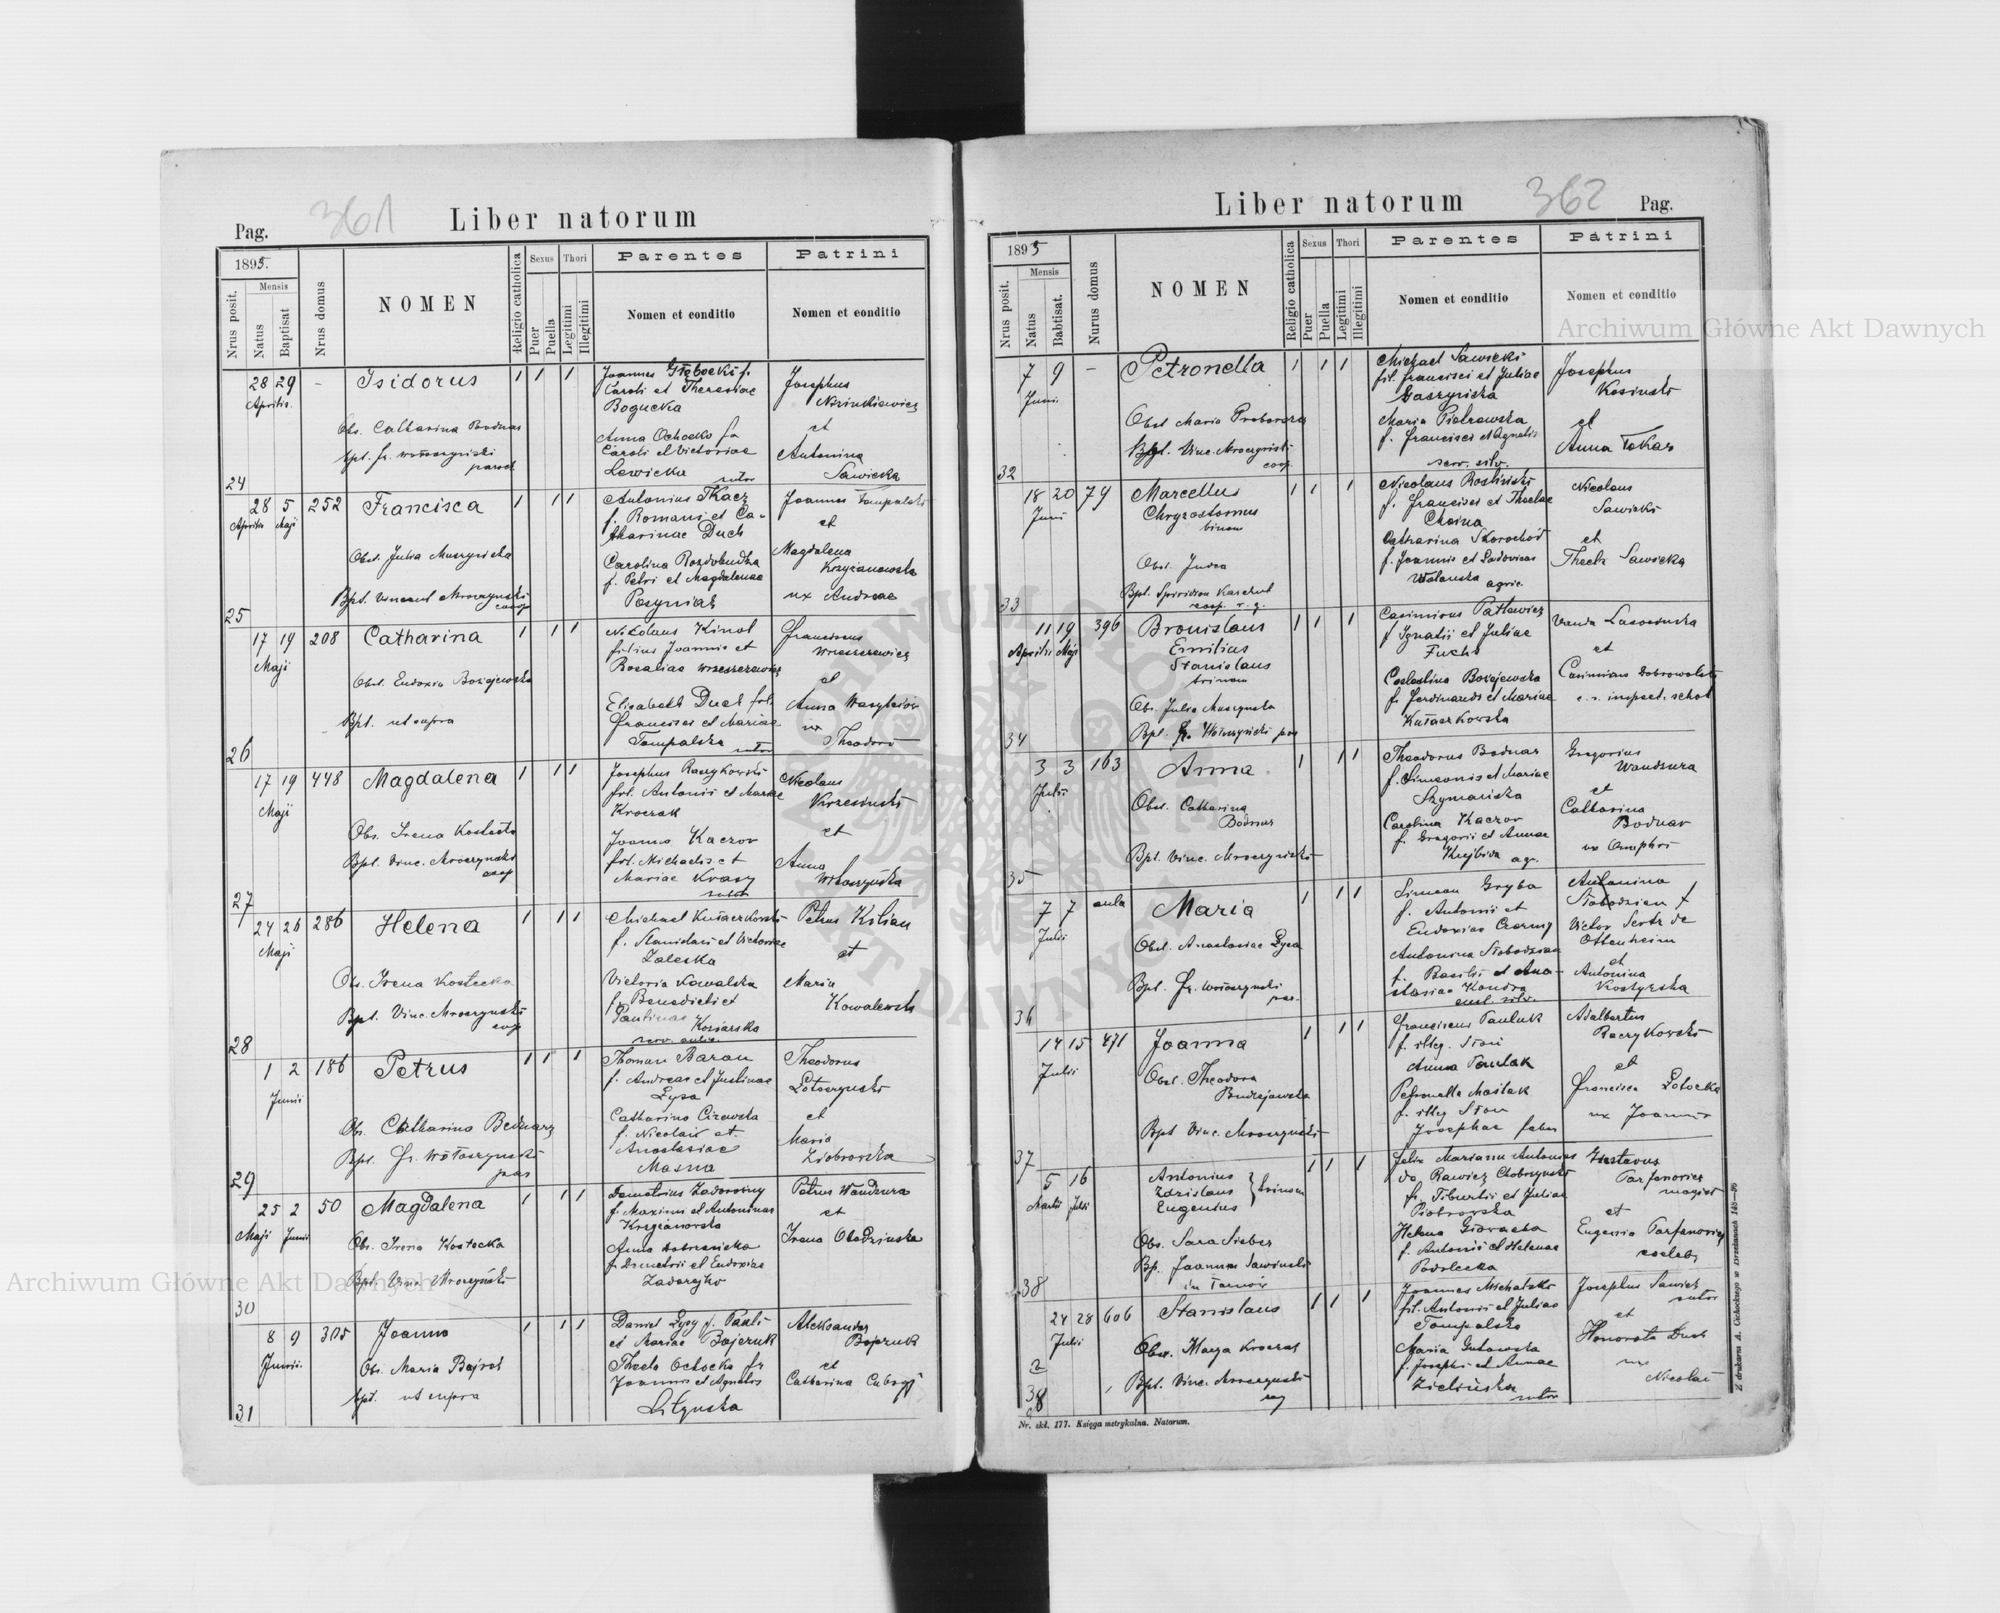 361
Pag.
Liber natorum
1895.
Nrus posit.
Mensis
Natus
Baptisat
Nrus domus
NOMEN
Religio catholica
Sexus
Puer
Puella
Thori
Legitimi
Illegitimi
Parentes
Nomen et conditio
Patrini
Nomen et conditio
24
28 29
Aprilis.
-
Isidorus
1 1 1
Obs. Catharina Bodnar
bpt. fr. Wołoszyński
paroch
Joannes Głębocki f.
Caroli et Theresiae
Bogucka
Anna Ochocko fa
Caroli et Victoriae
Lewicka
sutor
Josephus
et
Antonina
Sawicka
25
28 5
Aprilis Maji
252
Francisca
1 1 1
Obst. Julia Muszyńska
Bpt. Vincent Mroczyński
coop
Antonius Tkacz
f. Romani et Ca-
tharinae Duch
Carolina Rozdobudzka
f. Petri et Magdalenae
Posyniak
Joannes Tompalski
et
Magdalena
Krzyżanowska
ux Andreae
26
17 19
Maji
208
Catharina
1 1 1
Obst. Eudoxia Bożejewska
Bpt. ut supra
Nikolaus Kinal
filius Joannis et
Rosaliae Wrzeszczewicz
Elisabeth Duch fil.
Francisci et Mariae
Tompalska
sutor
Franciscus
Wrzeszczewicz
et
Anna Wasylciów
ux
Theodori
27
17 19
Maji
448
Magdalena
1 1 1
Obs. Irena Kostecka
Bpt. Vinc. Mroczyński
coop
Josephus Raczykowski
fil. Antonii et Mariae
Kroczak
Joanna Kaczor
fil. Michaelis et
Mariae Krasy
sutor
Nicolaus
Krzesiński
et
Anna
Wołoszyńska
28
24 26
Maji
286
Helena
1 1 1
Obs. Irena Kostecka
Bpt. Vinc. Mroczyński
coop
Michael Kułaczkowski
f. Stanislai et Victoriae
Zaleska
Victoria Kowalska
f. Benedicti et
Paulinae Koziarska
Petrus Kilian
et
Maria
Kowalewska
29
1 2
Junii
186
Petrus
1 1 1
Obs. Catharina Bednarz
Bpt. Fr. Wołoszyński
par
Thomas Baran
f. Andreae et Justinae
Lysa
Catharina Cizewska
f. Nicolai et
Anastasiae
Masna
Theodorus
Łotoczyński
et
Maria
Ziobrowska
30
25 2
Maji Junii
50
Magdalena
1 1 1
Obs. Irena Kostecka
Bpt. Vinc. Mroczyński
Demetrius Zadorożny
f. Maximi et Antoninae
Krzyżanowska
Anna Dobrzanicka
f. Demetrii et Eudoxiae
Zadorejko
Petrus Wandzura
et
Irena Obodzińska
31
8 9
Junii.
305
Joanna
1 1 1
Obs. Maria Bajrak
bpt. ut supra
Daniel Lysy f. Pauli
et Mariae Bojczuk
Thecla Ochocka fa
Joannis et Agnetis
Lityńska
Aleksander
Bojczuk
et
Catharina
362
Liber natorum
Pag.
1895
Nrus posit.
Mensis
Natus
Babtisat.
Nurus domus
NOMEN
Religio catholica
Sexus
Puer
Puella
Thori
Legitimi
Illegitimi
Parentes
Nomen et conditio
Patrini
Nomen et conditio
32
7 9
Juni.
-
Petronella
1 1 1
Obst Maria
Bpt. Vinc. Mroczyński
coop.
Michael Sawicki
fil. Francisci et Juliae
Gaszyńska
Maria Piotrowska
f. Francisci et Agnetis
serv. silv.
Josephus
Kosiński
et
Anna Tokar
33
18 20
Juni
79
Marcellus
Chryzostomus
binom
1 1 1
Obst. Judea
Bpt. Spiridion Karchut
coop. r. g.
Nicolaus Rosliński
f. Francisci et Theclae
Choina
Catharina Skorochód
f. Joannis et Ludovicae
Wolanska
agric.
Nicolaus
Sawicki
et
Thecla Sawicka
34
11 19
Aprilis Maji
396
Bronislaus
Emilius
Stanislaus
trinom
1 1 1
Obs. Julia Muszynska
Bpt. Fr. Wołoszyński par
Casimirus Patlewicz
f Ignatii et Juliae
Fuchs
Coelestina Bożejewska
f. Ferdinandi et Mariae
Kułaczkowska
Vanda
et
Casimirus Dobrowolski
c. r. inspect. schol
35
3 3
Julii
163
Anna
1 1 1
Obst. Catharina
Bodnar
Bpt. Vinc. Mroczyński
Theodorus Bodnar
f. Simeonis et Mariae
Szymańska
Carolina Kaczor
f. Gregorii et Annae
agr.
Gregorius
Wandzura
et
Catharina
Bodnar
ux Onuphri
36
7 7
Julii
aula
Maria
1 1 1
Obst. Anastasiae Lysa
Bpt. Fr. Wołoszyński
par.
Simeon Gryba
f. Antonii et
Eudoxiae Czerny
Antonina Słobodzian
f. Basilii et Ana-
stasiae Kondra
cust. silv.
Antonina
Słobodzian
Victor Sertz de
Ottenheim
et
Antonina
Kostyrska
37
14 15
Julii
471
Joanna
1 1 1
Obst. Theodora
Budzejewska
Bpt Vinc. Mroczyński
Franciscus Pauluk
f. illeg. tori
Anna Pauluk
Petronella Maślak
f. illeg tori
Josephae faber
Adalbertus
Raczykowski
et
Francisca Łotocka
ux Joannis
38
5 16
Martii Julii
Antonius
Zdzislaus
Eugenius
trinom
1 1 1
Obs. Sara Sieber
Bp. Joannes Sawiński
in
Felix Marianus Antonius
de Rawicz Chobrzyński
f. Tiburtii et Juliae
Piotrowska
Helena
f. Antonii et Helenae
Podolecka
Gustavus
Parfanowicz
et
Eugenia Parfanowicz
coelebs
38
24 28
Julii
606
Stanislaus
1 1 1
Obst. Marya Kroczak
Bpt. Vinc. Mroczyński
Joannes Michalski
fil. Antonii et Juliae
Tompalska
Maria Gutowska
f. Josephi et Annae
Zielińska
sutor
Josephus Sawicz
sutor
et
Honorata Duch
ux
Nicolai
Nr. skł. 177. Księga metrykalna. Natorum.
Z drukarni A. Cichockiego w Brzeżanach 148—96
Archiwum Główne Akt Dawnych
Archiwum Główne Akt Dawnych
ARCHIWUM GŁÓWNE AKT DAWNYCH